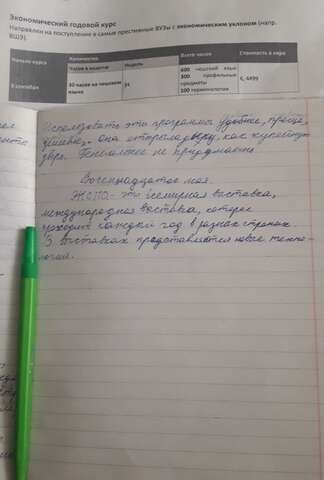 Экономический годовой курс
Направлен на поступление в самые престижные ВУЗы с экономическим уклоном (напр.
ВШЭ).
Начало курса Количество Всего часов Стоимость в евро
Часов в неделю Недель
5 сентября 30 часов на чешском языке 34 600 чешский язык 300 профильные предметы 100 терминология €, 4499
Использовать эту программу удобнее, проще,
дешевле, - она открыла дверь, как
Гениальнее не придумаешь.
Восемнадцатое мая.
ЭКСПО - это всемирная выставка,
международная выставка, которая
проходит каждый год в разных странах.
В выставках представляются новые техно-
логии.